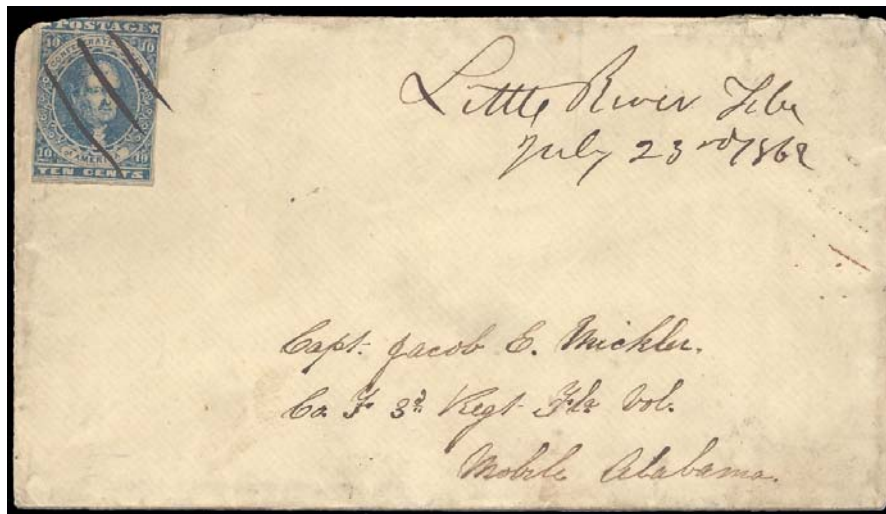 POSTAGE
10 CONFEDERATE 10
10 OF AMERICA 10
TEN CENTS
Little River Fla
July 23rd 1862
Capt. Jacob E. Mickler.
Co. F 3d Regt Fla Vol.
Mobile Alabama.